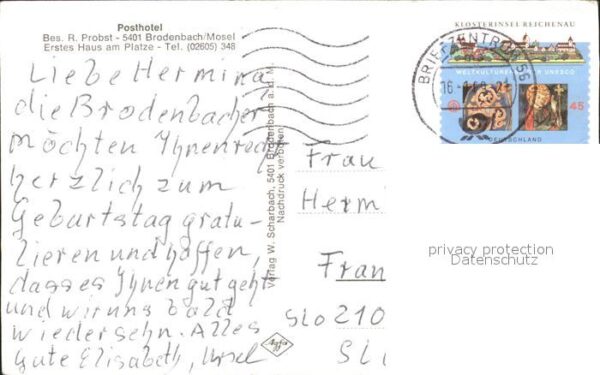 Posthotel
Bes. R. Probst - 5401 Brodenbach/Mosel
Erstes Haus am Platze - Tel. (02605) 348
Liebe Hermina
die Brodenbacher
möchten Ihnen noch
herzlich zum
Geburtstag gratu-
lieren und hoffen,
dass es Ihnen gut geht
und wir uns bald
wiedersehn. Alles
Gute Elisabeth,
Verlag W. Scharbach, 5401 Brodenbach a. d. M.
Nachdruck verboten
KLOSTERINSEL REICHENAU
WELTKULTURERBE DER UNESCO
45
DEUTSCHLAND
BRIEFZENTRUM 56
Frau
Herm
Fran
SLO 210
SL
Agfa
privacy protection
Datenschutz